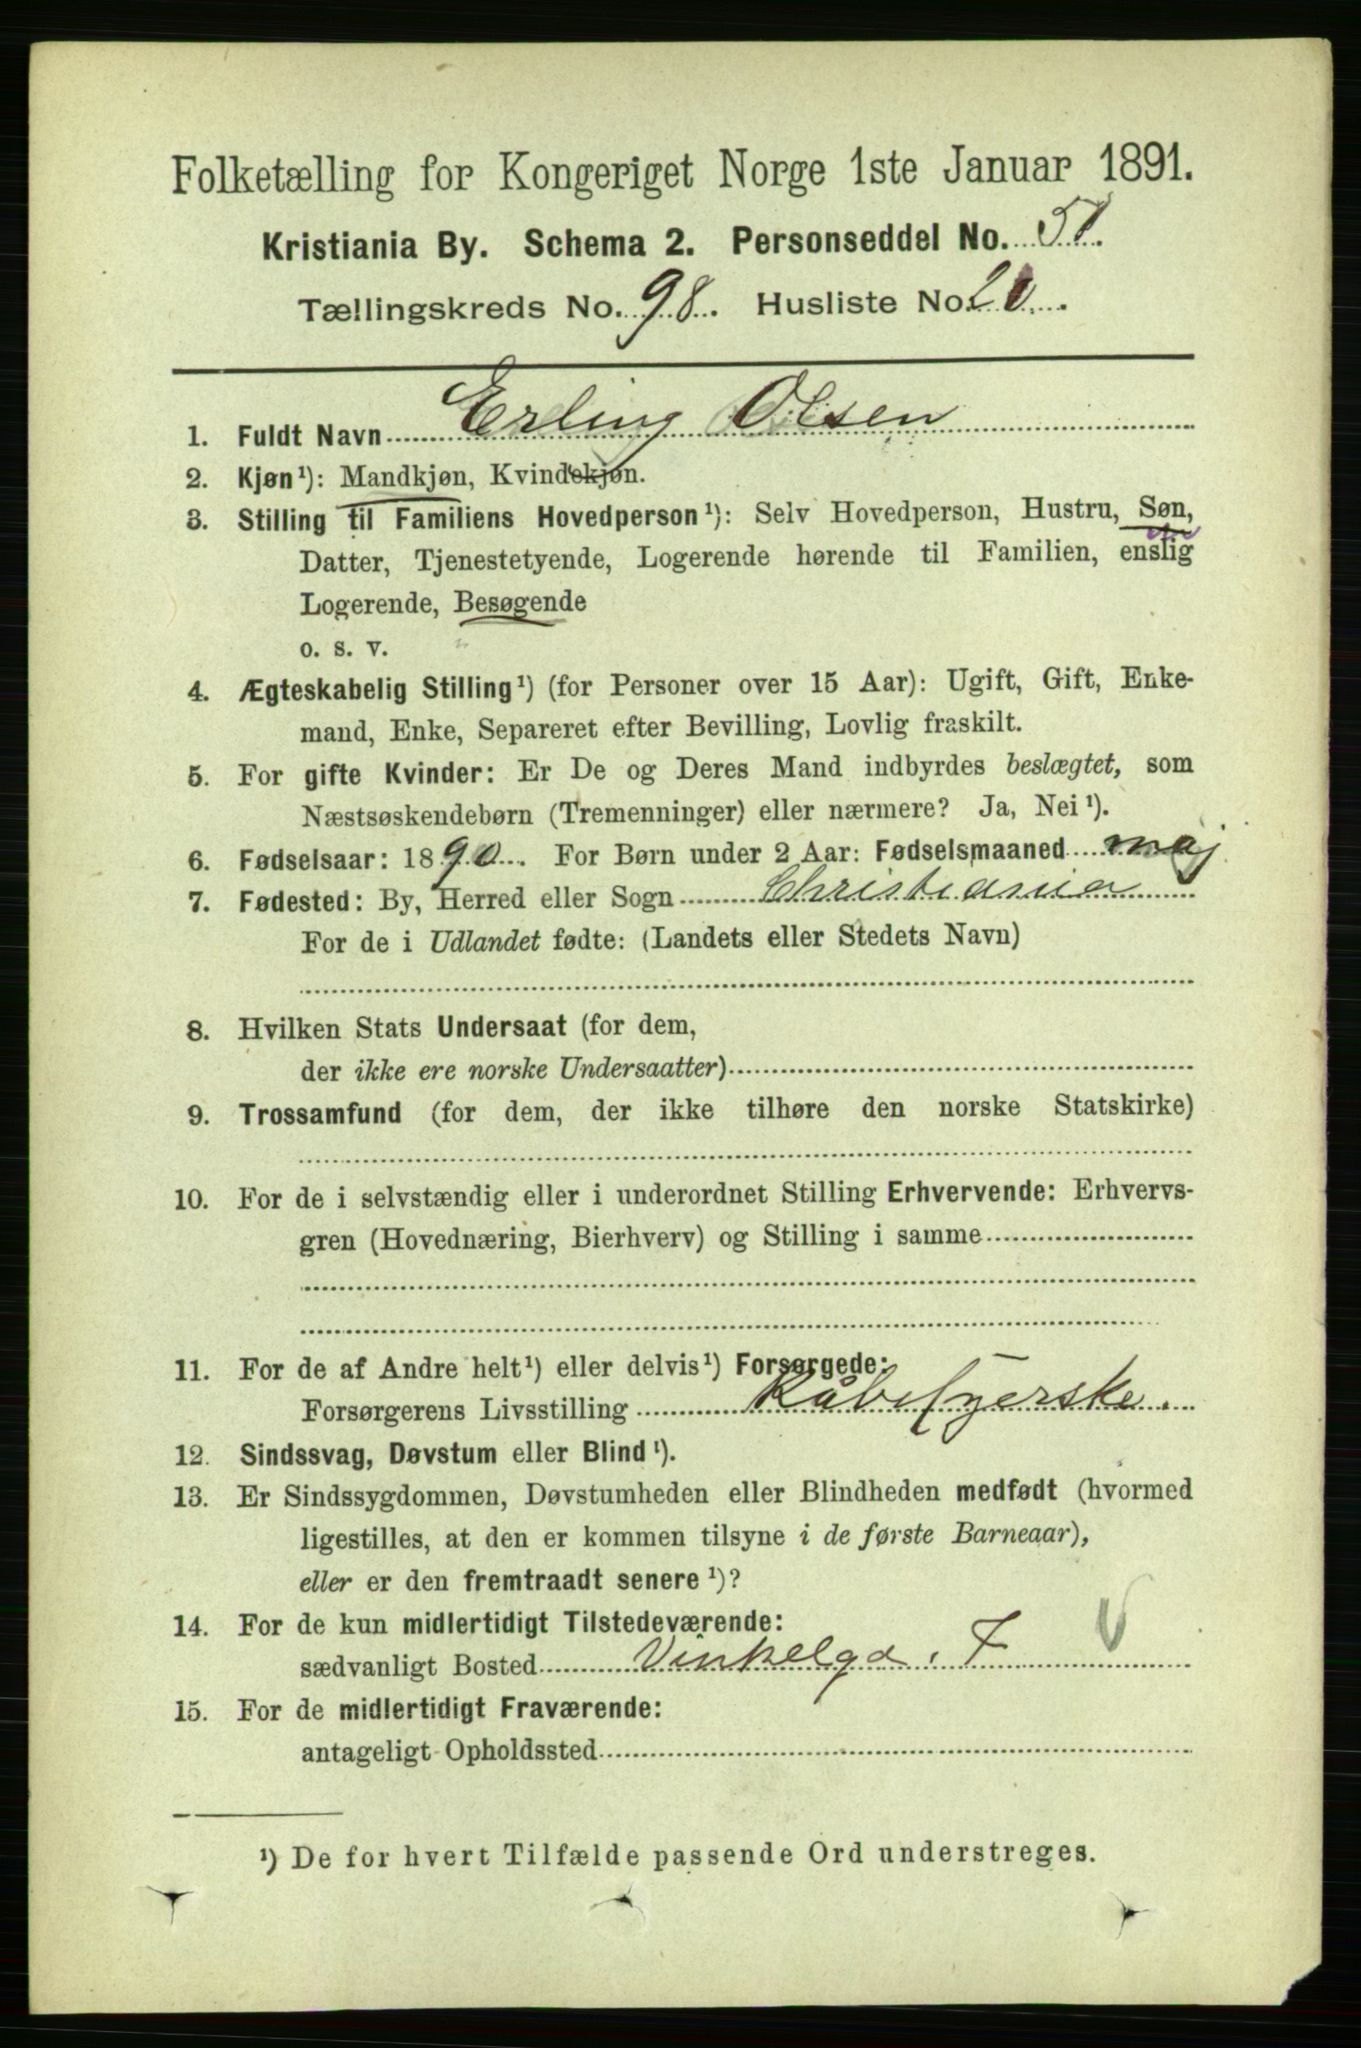 Folketælling for Kongeriget Norge 1ste Januar 1891.
Kristiania By. Schema 2. Personseddel No. 51.
Tællingskreds No. 98. Husliste No. 20.
1. Fuldt Navn Erling Olsen
2. Kjøn¹): Mandkjøn, Kvindekjøn.
3. Stilling til Familiens Hovedperson¹): Selv Hovedperson, Hustru, Søn,
Datter, Tjenestetyende, Logerende hørende til Familien, enslig
Logerende, Besøgende
o. s. v.
4. Ægteskabelig Stilling¹) (for Personer over 15 Aar): Ugift, Gift, Enke-
mand, Enke, Separeret efter Bevilling, Lovlig fraskilt.
5. For gifte Kvinder: Er De og Deres Mand indbyrdes beslægtet, som
Næstsøskendebørn (Tremenninger) eller nærmere? Ja, Nei¹).
6. Fødselsaar: 1890. For Børn under 2 Aar: Fødselsmaaned maj
7. Fødested: By, Herred eller Sogn Christiania
For de i Udlandet fødte: (Landets eller Stedets Navn)
8. Hvilken Stats Undersaat (for dem,
der ikke ere norske Undersaatter)
9. Trossamfund (for dem, der ikke tilhøre den norske Statskirke)
10. For de i selvstændig eller i underordnet Stilling Erhvervende: Erhvervs-
gren (Hovednæring, Bierhverv) og Stilling i samme
11. For de af Andre helt¹) eller delvis¹) Forsørgede:
Forsørgerens Livsstilling Kåbesyerske.
12. Sindssvag, Døvstum eller Blind¹).
13. Er Sindssygdommen, Døvstumheden eller Blindheden medfødt (hvormed
ligestilles, at den er kommen tilsyne i de første Barneaar),
eller er den fremtraadt senere¹)?
14. For de kun midlertidigt Tilstedeværende:
sædvanligt Bosted Vinkelgd. 7
15. For de midlertidigt Fraværende:
antageligt Opholdssted
¹) De for hvert Tilfælde passende Ord understreges.